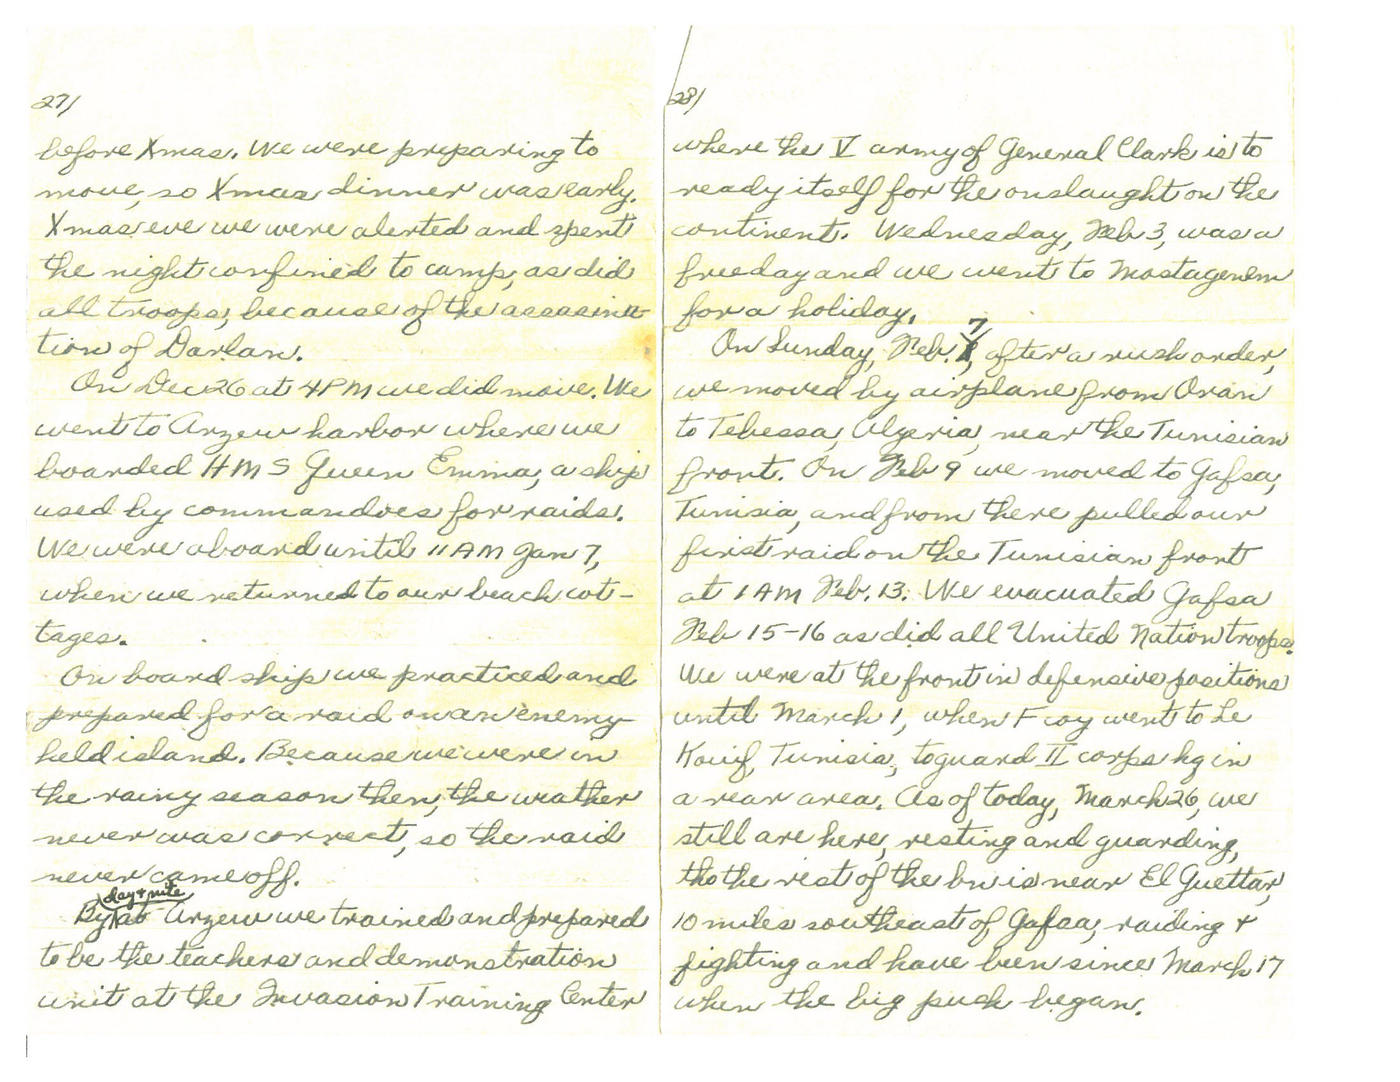 27/
before Xmas. We were preparing to
move, so Xmas dinner was early.
Xmas eve we were alerted and spent
the night confined to camp, as did
all troops, because of the assasina-
tion of Darlan.
On Dec 26 at 4 PM we did move. We
went to Arzew harbor where we
boarded HMS Queen Emma, a ship
used by commandoes for raids.
We were aboard until 11 AM Jan 7,
when we returned to our beach cot-
tages.
On board ship we practiced and
prepared for a raid on an enemy-
held island. Because we were in
the rainy season then, the weather
never was correct, so the raid
never came off.
day & nite
By at Arzew we trained and prepared
to be the teachers and demonstration
unit at the Invasion Training Center
28/
where the V army of General Clark is to
ready itself for the onslaught on the
continent. Wednesday, Feb 3, was a
free day and we went to Mostagenem
for a holiday.
On Sunday, Feb. 7, after a rush order,
we moved by airplane from Oran
to Tebessa, Algeria, near the Tunisian
front. On Feb 9 we moved to Gafsa,
Tunisia, and from there pulled our
first raid on the Tunisian front
at 1 AM Feb. 13. We evacuated Gafsa
Feb 15-16 as did all United Nation troops.
We were at the front in defensive positions
until March 1, when F coy went to Le
Kouif, Tunisia, to guard II corps hq in
a rear area. As of today, March 26, we
still are here, resting and guarding,
tho the rest of the bn is near El Guettar,
10 miles southeast of Gafsa, raiding &
fighting and have been since March 17
when the big push began.